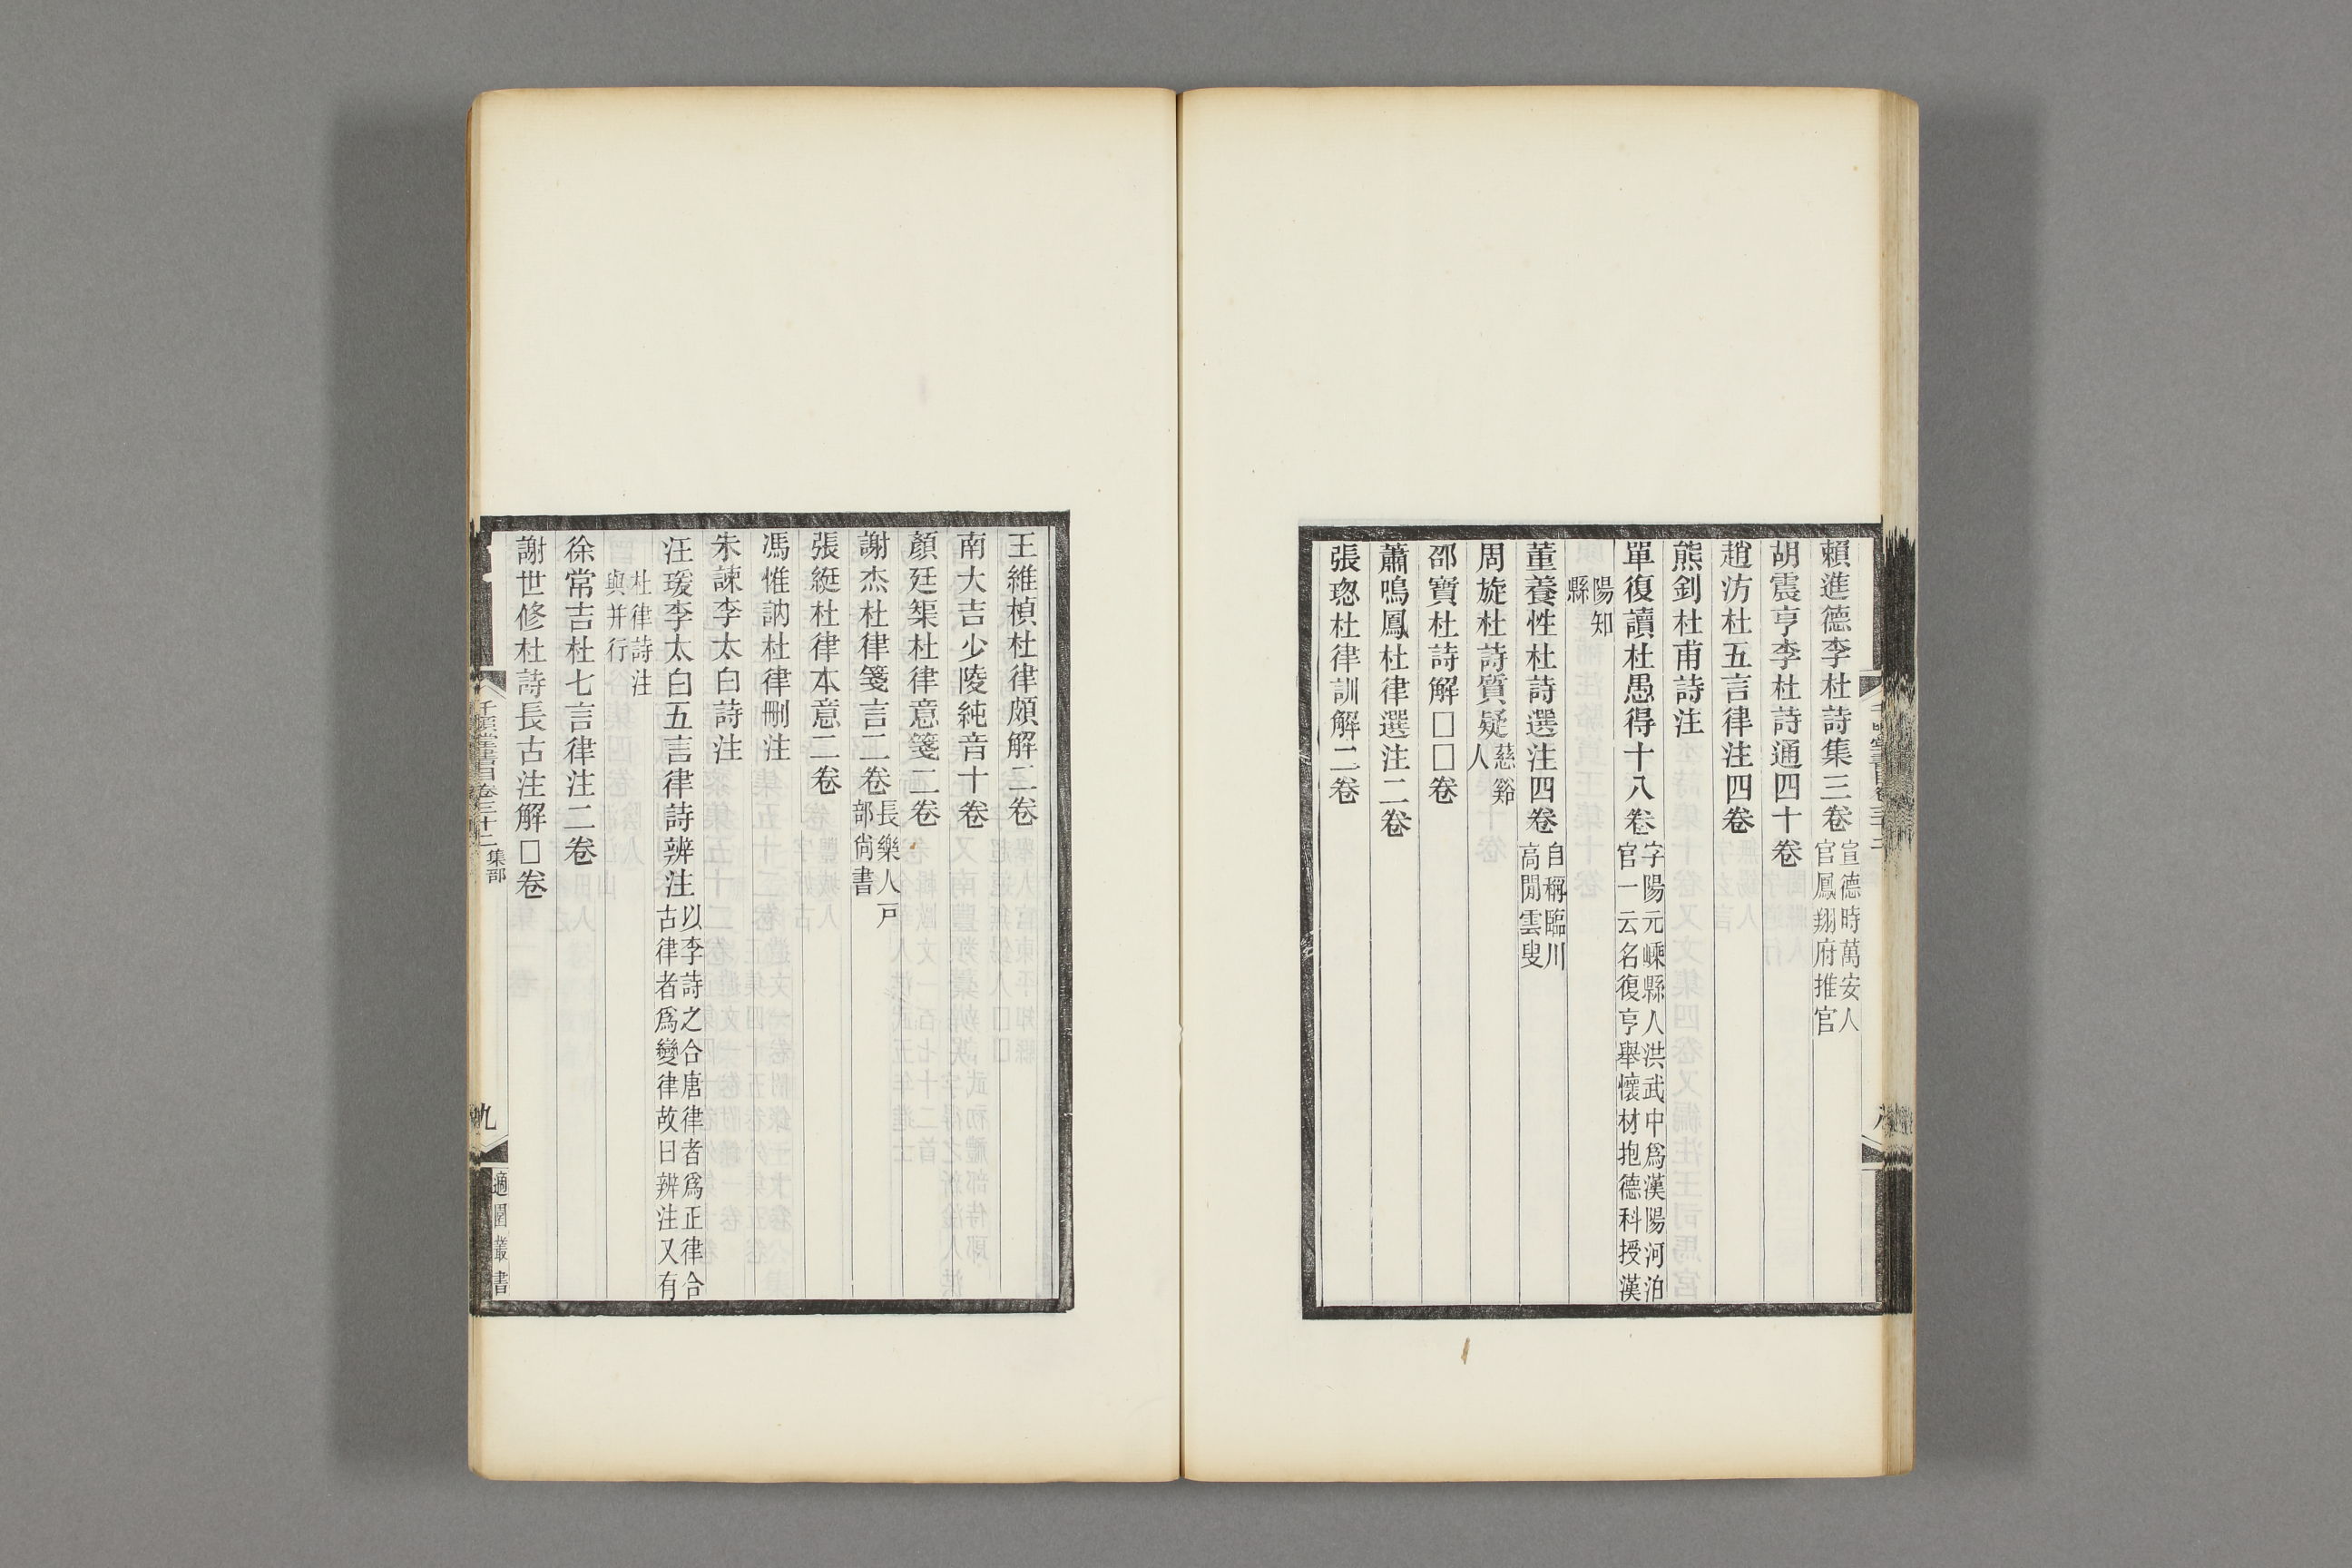 賴進德李杜詩集三卷宣德時萬安人官鳳翔府推官
胡震亨李杜詩通四十卷
趙汸杜五言律注四卷
熊釗杜甫詩注
單復讀杜愚得十八卷字陽元嵊縣人洪武中爲漢陽河泊官一云名復亨舉懷材抱德科授漢
陽知縣
董養性杜詩選注四卷自稱臨川高閒雲叟
周旋杜詩質疑慈谿人
邵寶杜詩解□□卷
蕭鳴鳳杜律選注二卷
張璁杜律訓解二卷
王維楨杜律頗解二卷
南大吉少陵純音十卷
顏廷榘杜律意箋二卷
謝杰杜律箋言二卷長樂人戸部尙書
張綖杜律本意二卷
馮惟訥杜律刪注
朱諫李太白詩注
汪瑗李太白五言律詩辨注以李詩之合唐律者爲正律合古律者爲變律故曰辨注又有
杜律詩注與并行
徐常吉杜七言律注二卷
謝世修杜詩長古注解□卷
千頃堂書目卷三十二 集部
九
適園叢書